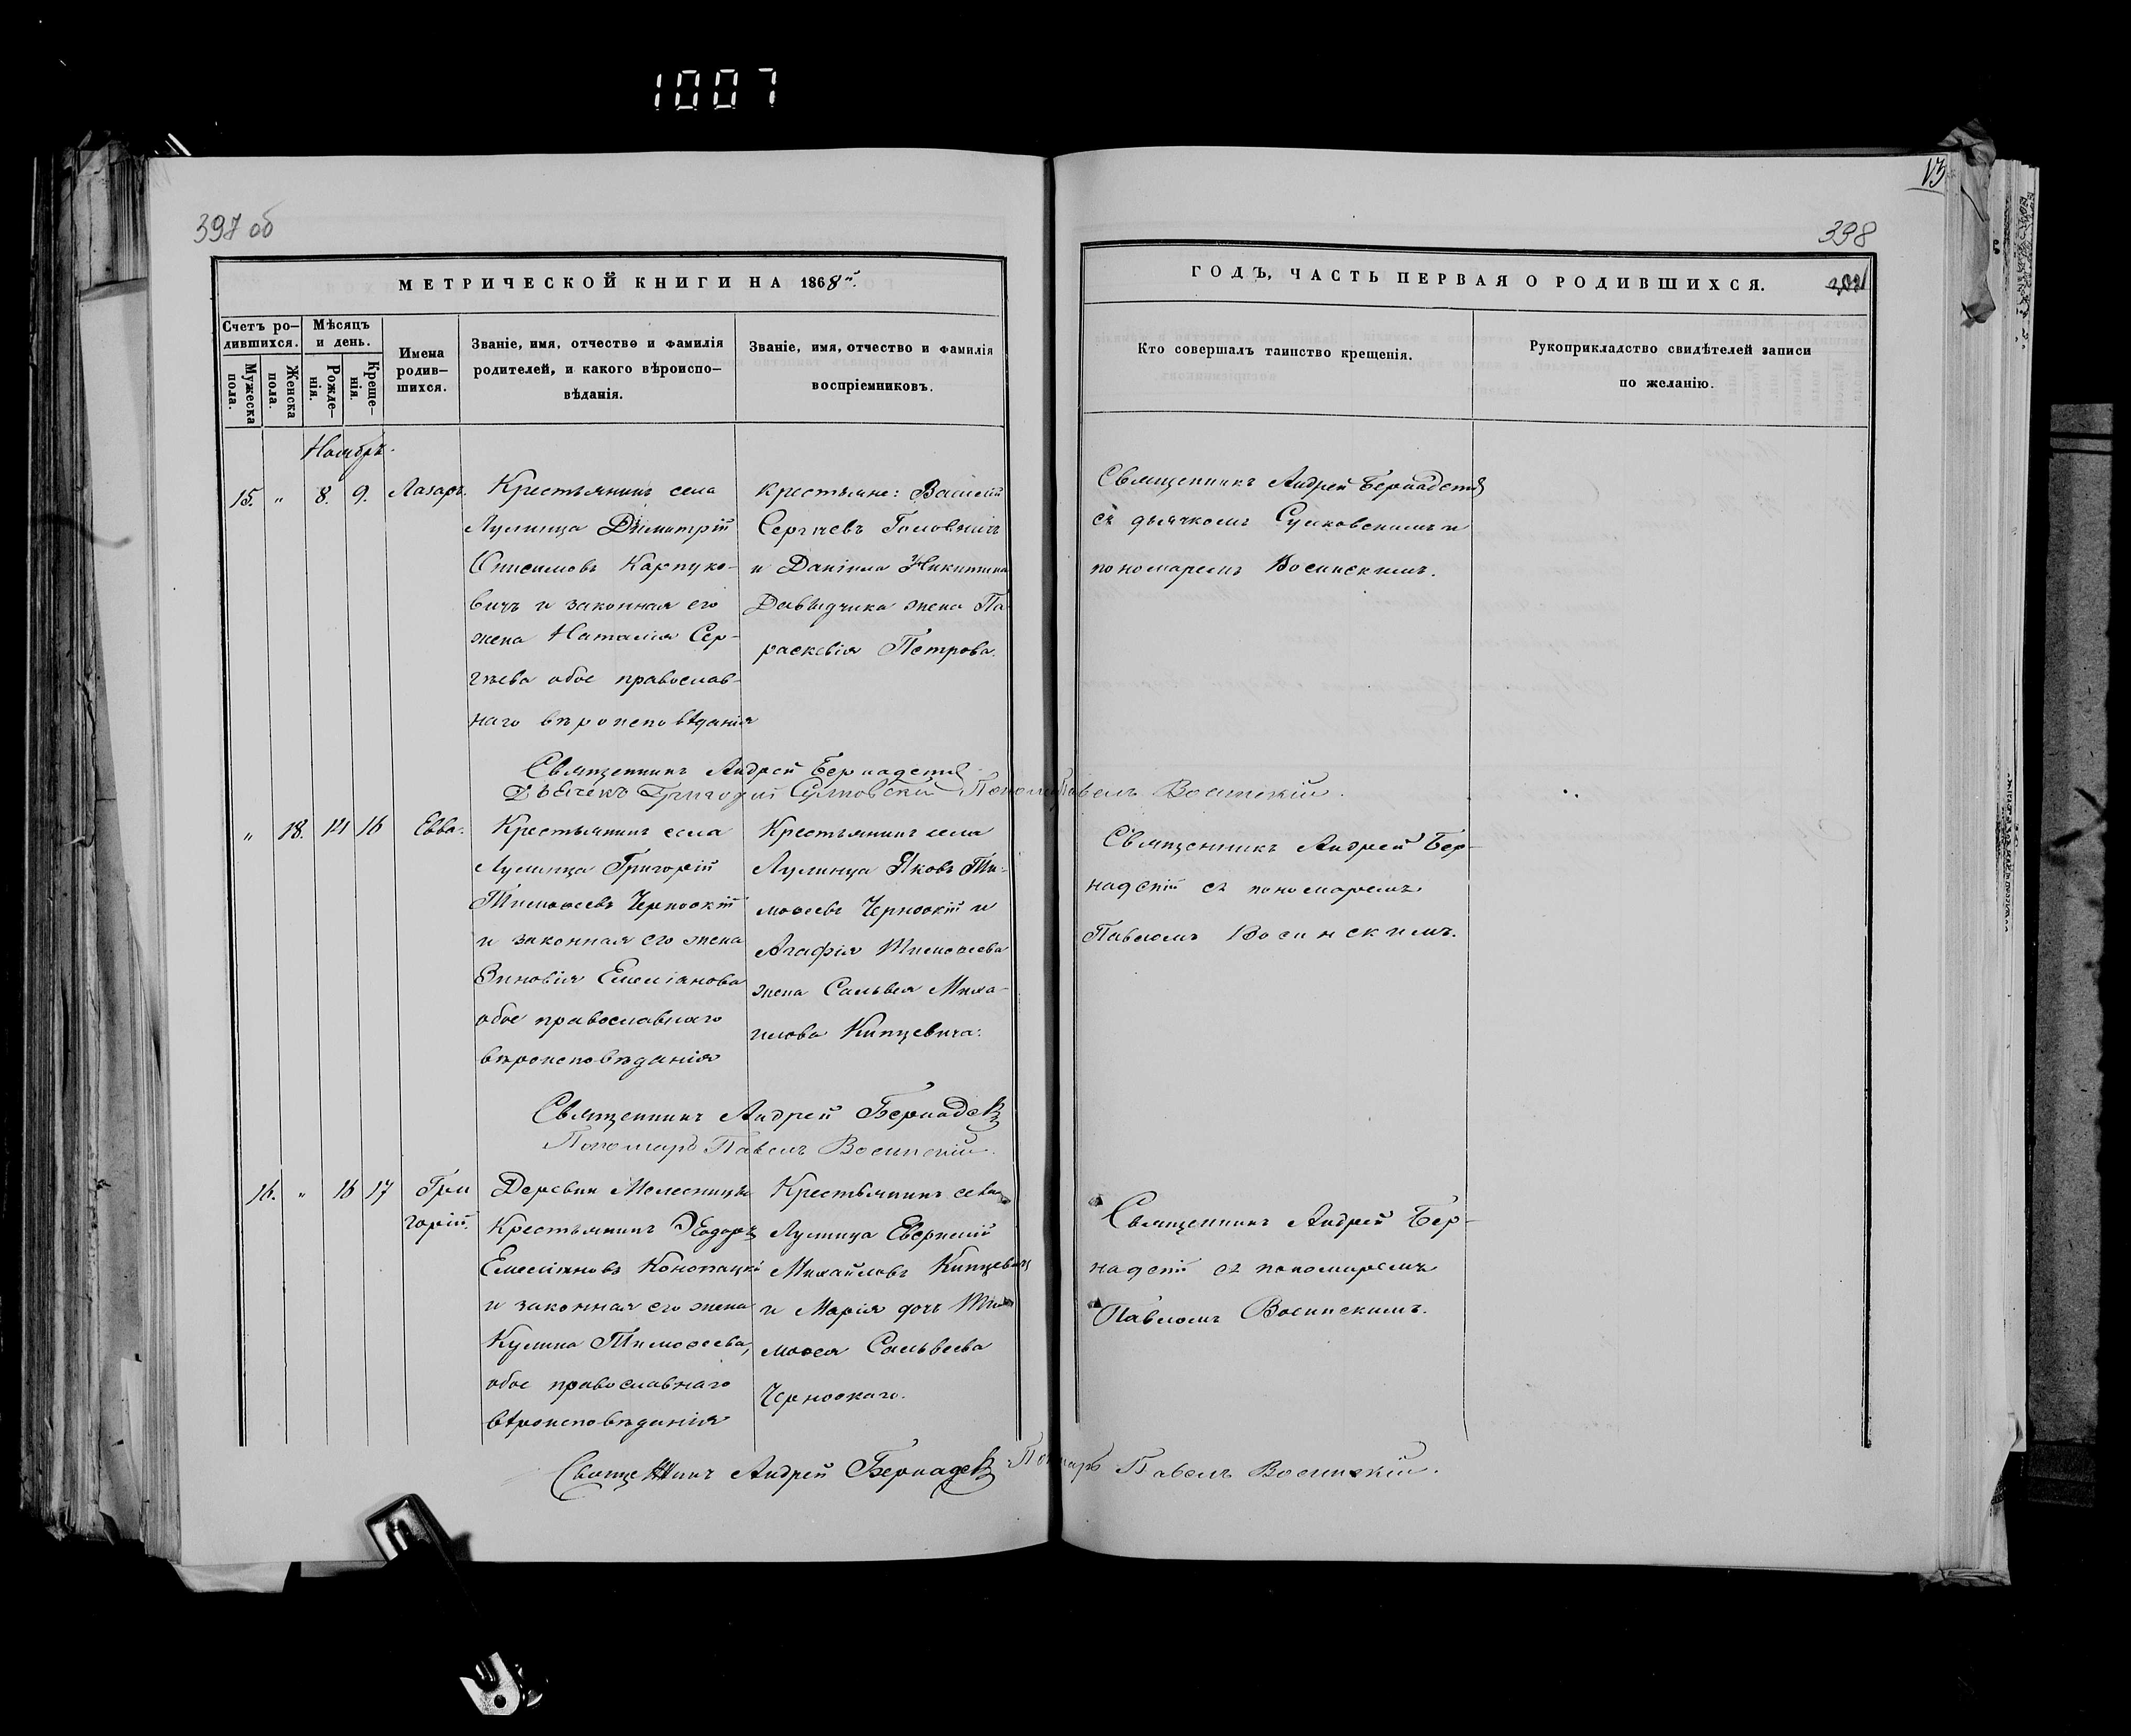 1007
13
397 об
398
МЕТРИЧЕСКОЙ КНИГИ НА 1868й.
ГОДЪ, ЧАСТЬ ПЕРВАЯ О РОДИВШИХСЯ.
Счетъ ро-
дившихся.
Мужеска
пола.
Женска
пола.
Мѣсяцъ
и день.
Рожде-
нія.
Креще-
нія.
Имена
родив-
шихся.
Званіе, имя, отчество и фамилія
родителей, и какого вѣроиспо-
вѣданія.
Званіе, имя, отчество и фамилія
воспріемниковъ.
Кто совершалъ таинство крещенія.
Рукоприкладство свидѣтелей записи
по желанію.
Ноябрь.
15. " 8. 9. Лазарь.
Крестьянинъ села
Лулинца Димитрій
Онисимовъ Карпуко-
вичъ и законная его
жена Наталія Сер-
гѣева обое православ-
наго вѣроисповѣданія
крестьяне: Василій
Сергѣевъ Головничъ
и Даніила Никитина
Давыдчика жена Па
раскевія Петрова.
Священникъ Андрей Бернадскій
съ дьячкомъ Сулковскимъ и
пономаремъ Восинскимъ.
Священникъ Андрей Бернадскій
Дьячекъ Григорій Сулковскій Павелъ Восинскій.
" 18. 14 16 Евва.
Крестьянинъ села
Лулинца Григорій
Тимоѳеевъ Черноокій
и законная его жена
Зиновія Емеліанова
обое православнаго
вѣроисповѣданія
Крестьянинъ села
Лулинца Яковъ Ти-
моѳеевъ Черноокій и
Агафія Тимоѳеева
жена Савьвея Миха-
илова Кипцевича.
Священникъ Андрей Бер-
надскій съ пономаремъ
Павломъ Восинскимъ.
Священникъ Андрей Бернадскій
Пономарь Павелъ Восинскій.
16. " 16 17 Гри
горій.
Деревни Мелесницы
Крестьянинъ Ѳеодоръ
Емеліановъ Конопацкі
и законная его жена
Кулина Тимоѳеева,
обое православнаго
вѣроисповѣданія
Крестьянинъ села
Лулинца Евгеній
Михайловъ Кипцевичъ
и Марія дочь Ти
моѳея Савьвеева
Черноокаго.
Священникъ Андрей Бер-
надскій съ пономаремъ
Павломъ Восинскимъ.
Священникъ Андрей Бернадскій Пономарь Павелъ Восинскій.